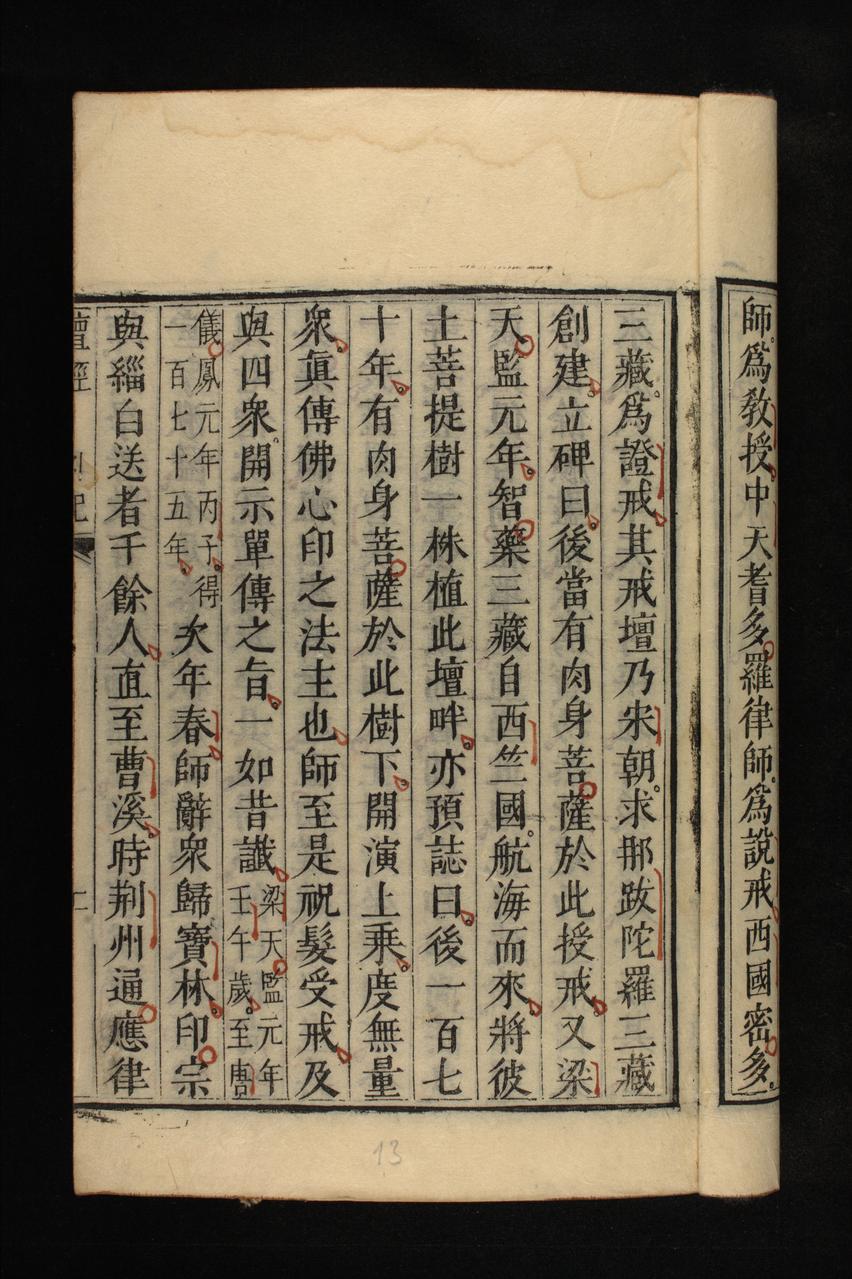 師爲教授中天耆多羅律師爲說戒西國密多
三藏爲證戒其戒壇乃宋朝求那跋陀羅三藏
創建立碑曰後當有肉身菩薩於此授戒又梁
天監元年智藥三藏自西竺國航海而來將彼
土菩提樹一株植此壇畔亦預誌曰後一百七
十年有肉身菩薩於此樹下開演上乘度無量
衆眞傳佛心印之法主也師至是祝髮受戒及
與四衆開示單傳之旨一如昔讖梁天監元年壬午歲至唐
儀鳳元年丙子得一百七十五年次年春師辭衆歸寶林印宗
與緇白送者千餘人直至曹溪時荆州通應律
壇經
13